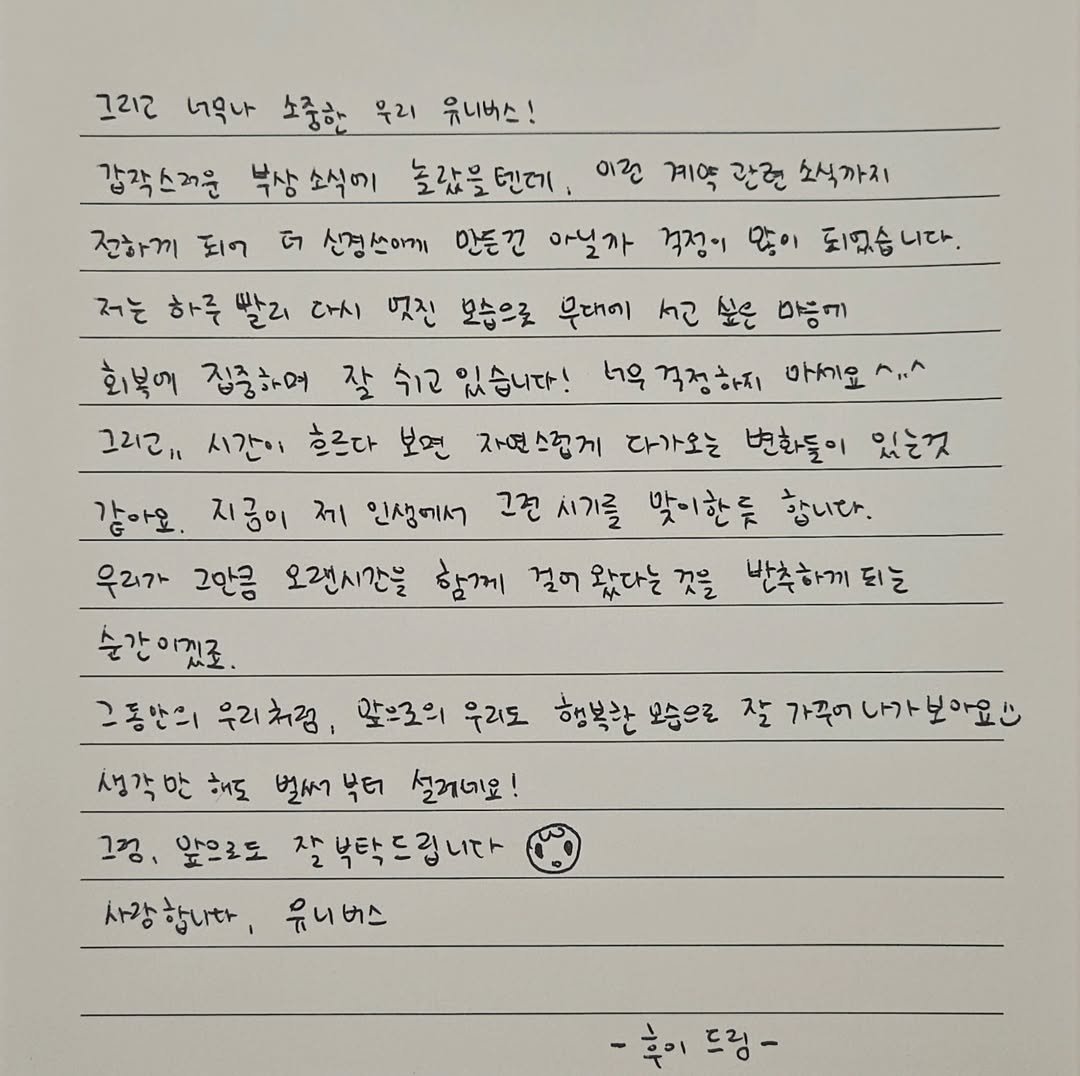 그리고 너무나 소중한 우리 유니버스!
갑작스러운 부상 소식에 놀랐을텐데, 이런 계약 관련 소식까지
전하게 되어 더 신경쓰이게 만든건 아닐까 걱정이 많이 되었습니다.
저는 하루 빨리 다시 멋진 모습으로 무대에 서고 싶은 마음에
회복에 집중하며 잘 쉬고 있습니다! 너무 걱정하지 마세요 ^,,^
그리고,, 시간이 흐르다 보면 자연스럽게 다가오는 변화들이 있는것
같아요. 지금이 제 인생에서 그런 시기를 맞이한듯 합니다.
우리가 그만큼 오랜시간을 함께 걸어 왔다는 것을 반추하게 되는
순간이겠죠.
그동안의 우리처럼, 앞으로의 우리도 행복한 모습으로 잘 가꾸어 나가 보아요
생각만 해도 벌써부터 설레네요!
그럼, 앞으로도 잘 부탁드립니다
사랑합니다, 유니버스
- 후이 드림 -